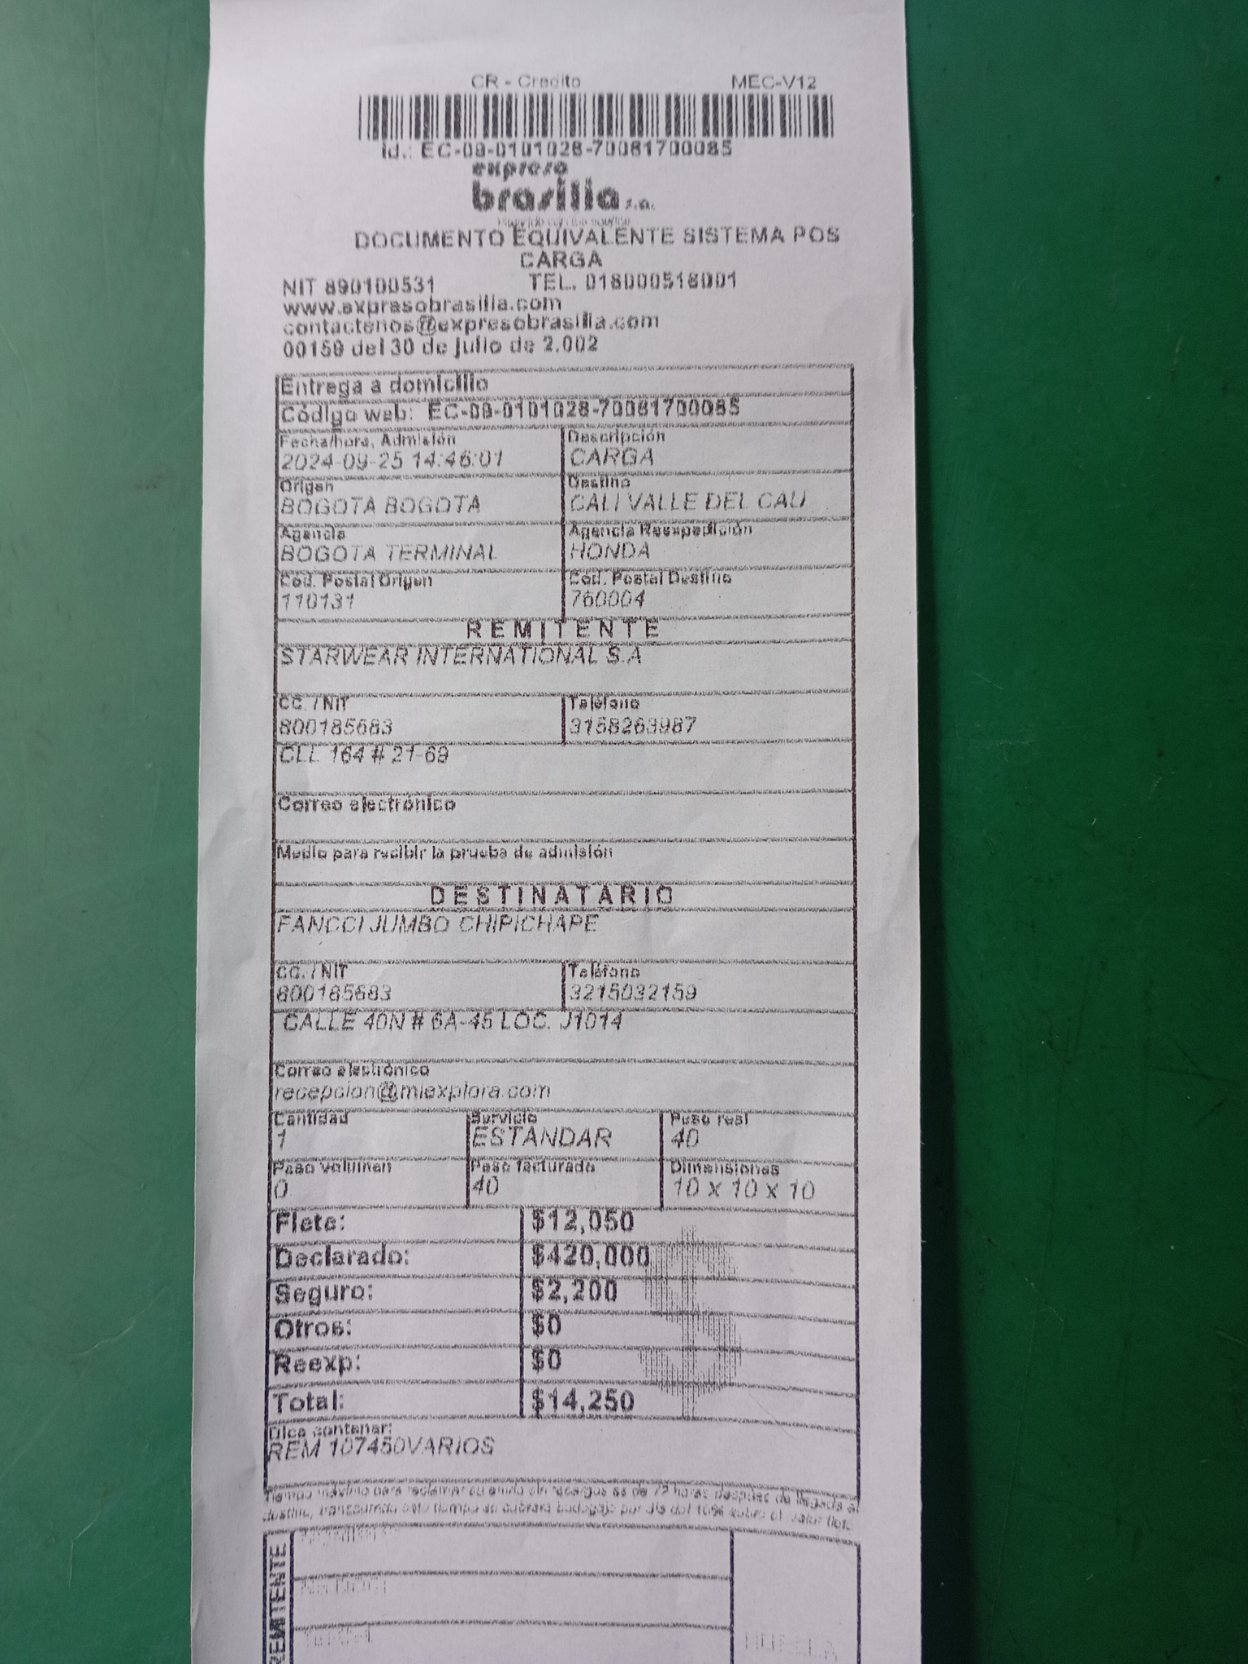 CR - Credito MEC-V12
Id.: EC-09-0101028-70081700085
expreso
brasilia s.a.
DOCUMENTO EQUIVALENTE SISTEMA POS
CARGA
NIT 890100531 TEL. 018000518001
www.expresobrasilia.com
contactenos@expresobrasilia.com
00159 del 30 de julio de 2.002
Entrega a domicilio
Código web: EC-09-0101028-70081700085
Fecha/hora, Admisión Descripción
2024-09-25 14:46:01 CARGA
Origen Destino
BOGOTA BOGOTA CALI VALLE DEL CAU
Agencia Agencia Reexpedición
BOGOTA TERMINAL HONDA
Cód. Postal Origen Cód. Postal Destino
110131 760004
REMITENTE
STARWEAR INTERNATIONAL S.A
CC. / NIT Teléfono
800185683 3158263987
CLL 164 # 21-69
Correo electrónico
Medio para recibir la prueba de admisión
DESTINATARIO
FANCCI JUMBO CHIPICHAPE
CC. / NIT Teléfono
800185683 3215032159
CALLE 40N # 6A-45 LOC. J1014
Correo electrónico
recepcion@miexplora.com
Cantidad Servicio Peso real
1 ESTANDAR 40
Peso volumen Peso facturado Dimensiones
0 40 10 x 10 x 10
Flete: $12,050
Declarado: $420,000
Seguro: $2,200
Otros: $0
Reexp: $0
Total: $14,250
Dice contener:
REM 107450VARIOS
Tiempo máximo para reclamar su envío sin recargos es de 72 horas después de llegada a
destino, transcurrido este tiempo se cobrará bodegaje por día del 10% sobre el valor flete.
REMITENTE
HUELLA